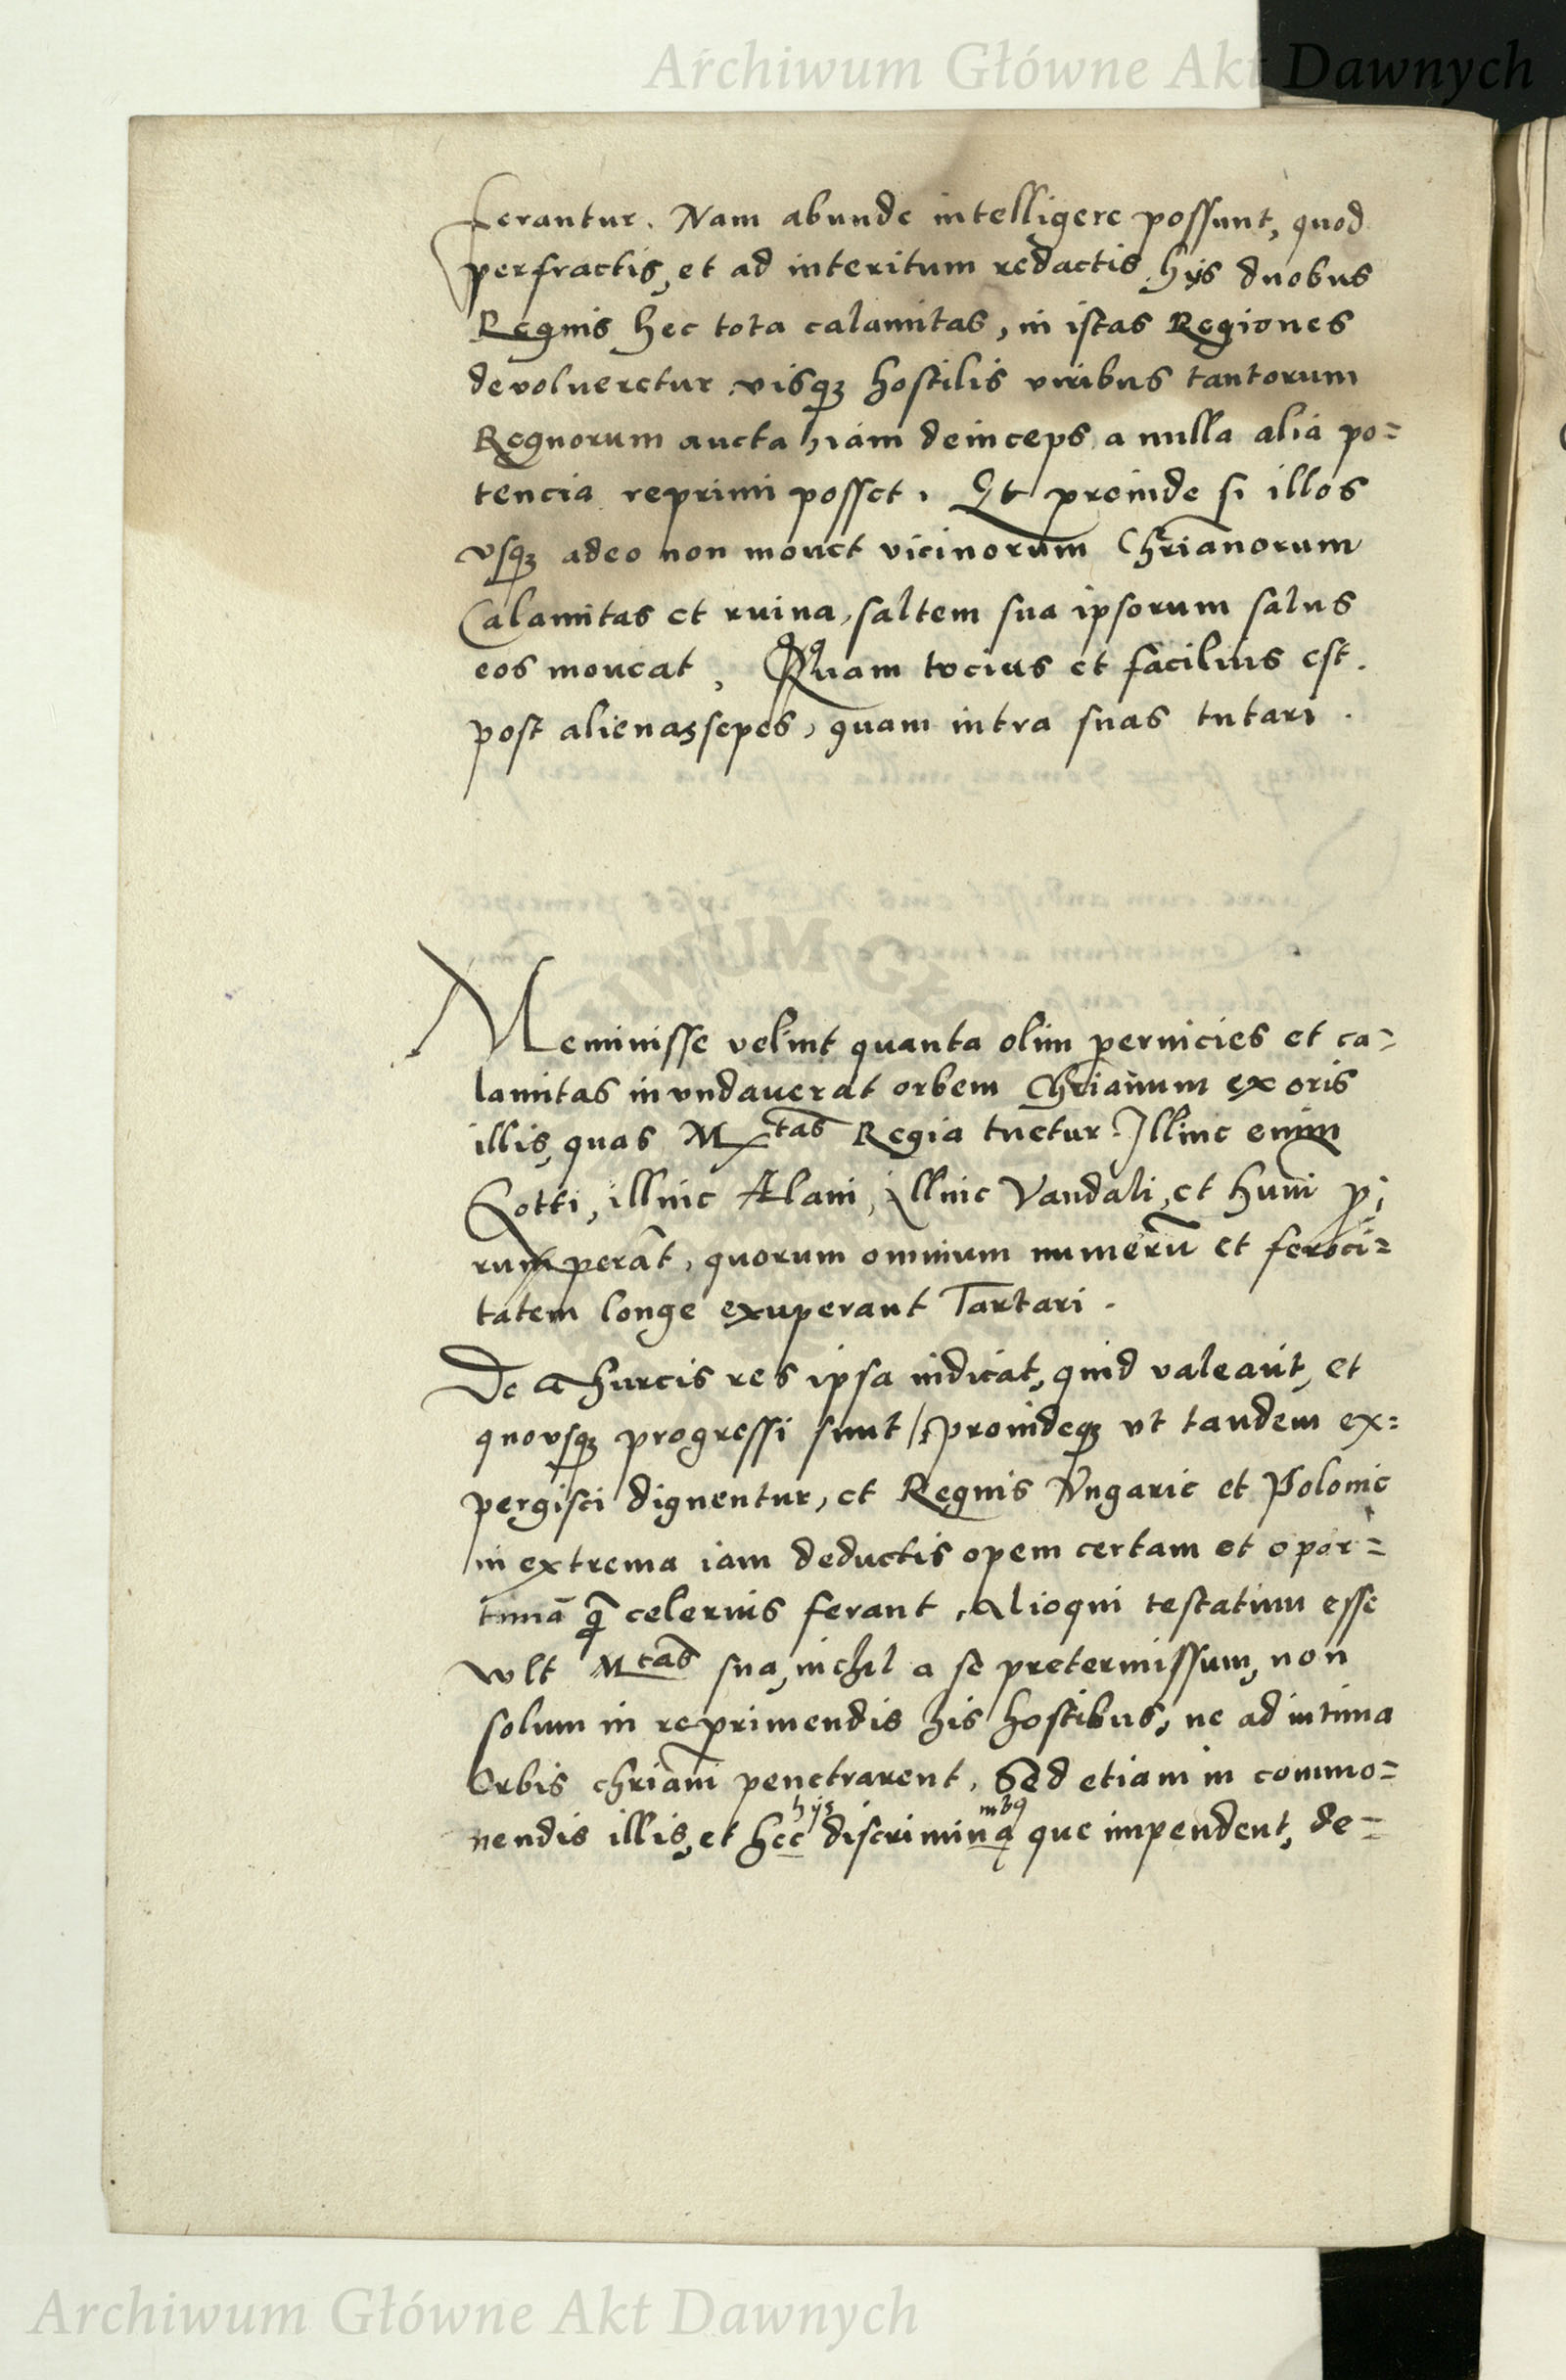 Archiwum Główne Akt Dawnych
ferantur. Nam abunde intelligere possunt, quod
perfractis, et ad interitum redactis hijs duobus
Regnis hec tota calamitas, in istas Regiones
devolueretur visq3 hostilis viribus tantorum
Regnorum aucta, iam deinceps a nulla alia po=
tencia reprimi posset. Et proinde si illos
vsq3 adeo non mouet vicinorum Chrianorum
Calamitas et ruina, saltem sua ipsorum salus
eos moueat, Quam tocius et facilius est.
post alienas sepes, quam intra suas tutari.
Meminisse velint quanta olim pernicies et ca=
lamitas inundauerat orbem Chrianum ex oris
illis, quas Mtas Regia tuetur. Illinc enim
Gotti, illinc Alani, illinc Vandali, et Huni p
rumperāt, quorum omnium numerū et feroci=
tatem longe exuperant Tartari.
De Thurcis res ipsa indicat, quid valeāt, et
quousq3 progressi sunt, proindeq3 vt tandem ex=
pergisci dignentur, et Regnis Vngarie et Polonie
in extrema iam deductis opem certam et opor=
tunā q̄ celerius ferant, Alioqui testatum esse
wlt Mtas sua, nichil a se pretermissum, non
solum in reprimendis his hostibus, ne ad intima
Orbis chriani penetrarent, Sed etiam in commo=
hijs mbq
nendis illis, et hec discrimina que impendent, de=
Archiwum Główne Akt Dawnych